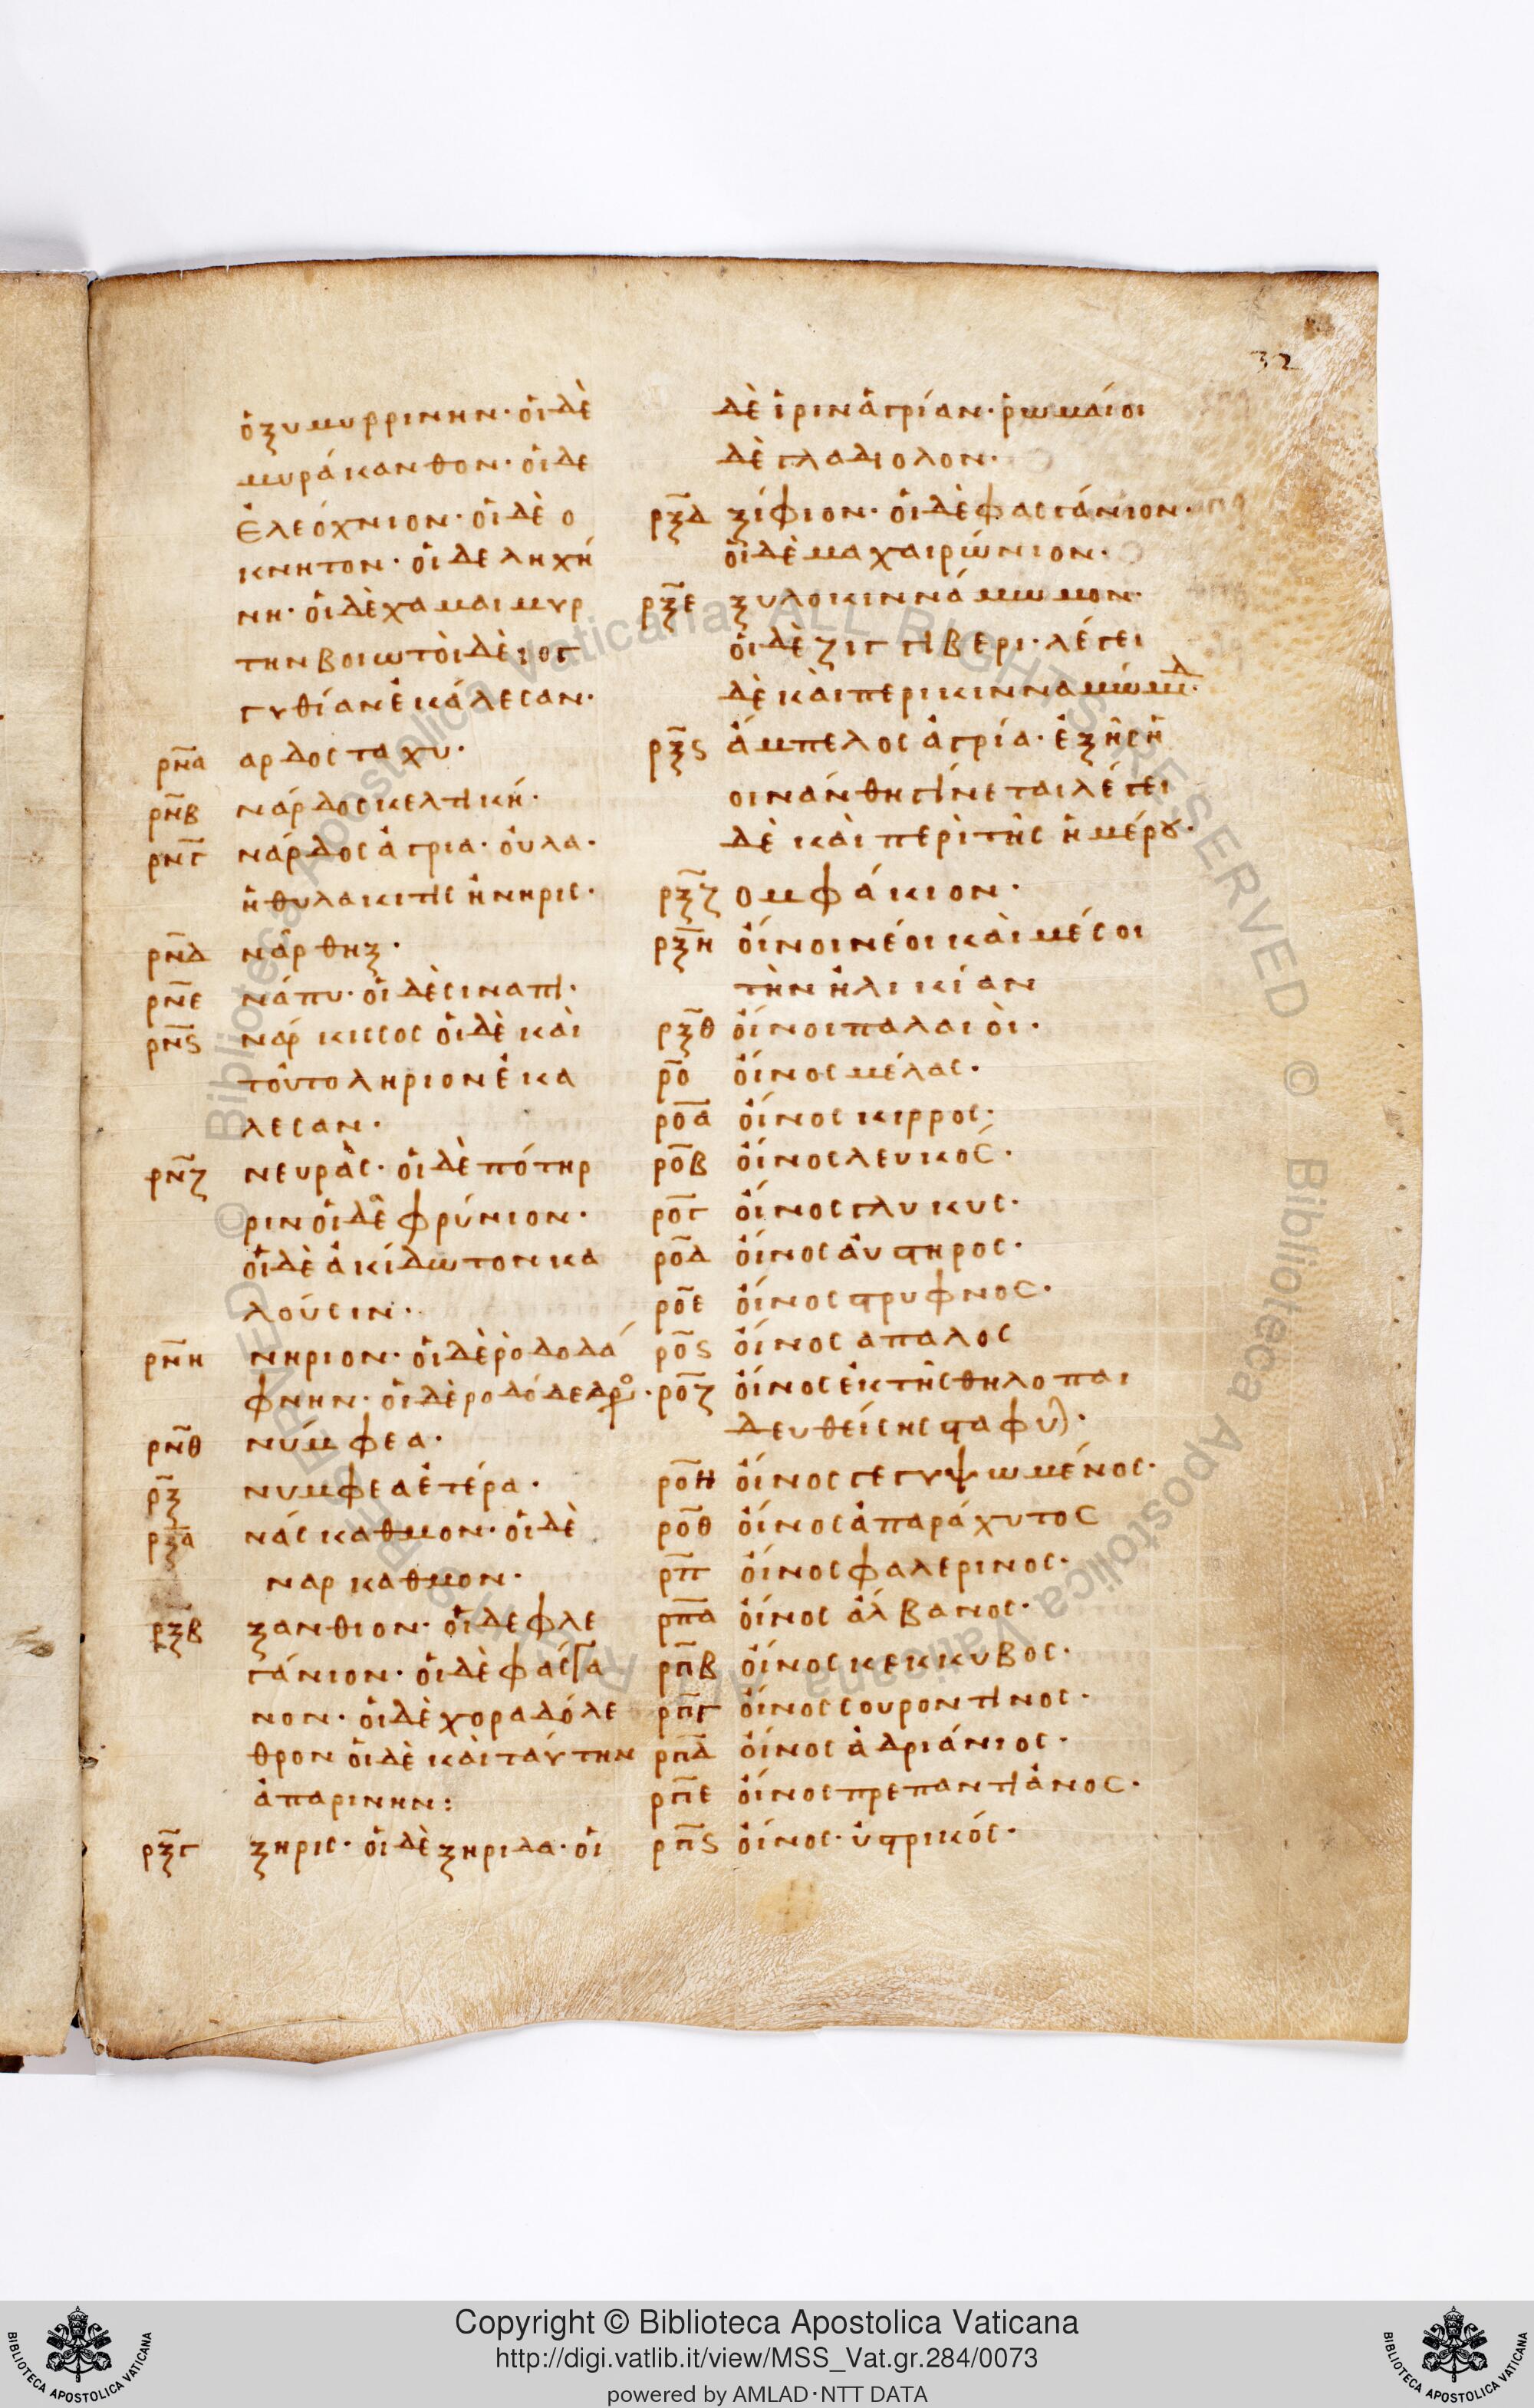 32
ὀξυμυρρινην· οἱ δὲ
μυράκανθον· οἱ δε
ἐλεόχνιον· οἱ δὲ ο
κνητον· οἱ δε ληχή
νη· οἱ δὲ χαμαιμυρ
την βοιωτὸι δὲ ιος
γυθίαν ἐκάλεσαν·
ρν̅α αρδοσταχυ·
ρν̅β νάρδος κελτική·
ρν̅γ νάρδος ἀγρια· ὀυλα·
ἢ θυλακιτις ἢ νηρις·
ρν̅δ νάρθηξ·
ρν̅ε νάπυ· οἱ δὲ σιναπι·
ρν̅ς νάρκισσος οἱ δὲ καὶ
τοῦτο ληριον ἐκα
λεσαν·
ρν̅ζ νευρὰς· οἱ δὲ πότηρ
ριν οἱ δὲ φρύνιον·
οἱ δὲ ἀκίδωτον κα
λούσιν·
ρν̅η νηριον· οἱ δὲ ῥοδοδά
φνην· οἱ δὲ ροδόδεδρο·
ρν̅θ νύμφεα·
ρξ̅ νυμφεα ἑτέρα·
ρξ̅α νάσκαθμον· οἱ δὲ
ναρκαθμον·
ρξ̅β ξανθιον· οἱ δε φλε
γάνιον· οἱ δὲ φάσγα
νον· οἱ δὲ χοραδόλε
θρον οἱ δὲ καὶ ταύτην
ἀπαρινην:
ρξ̅γ ξηρις· οἱ δὲ ξηριδα· οἱ
δὲ ἰριν ἀγρίαν· ῥωμαίοι
δὲ γλαδιολον·
ρξ̅δ ξίφιον· οἱ δὲ φασγάνιον·
οἱ δὲ μαχαιρώνιον·
ρξ̅ε ξυλοκιννάμωμον·
οἱ δὲ ζιγγίβερι· λέγει
δὲ κὰι περι κινναμώμ·
ρξ̅ς ἄμπελος ἀγρία· ἐξ ῆς ἡ
οινάνθη γίνεται λέγει
δὲ καὶ περὶ τῆς ἡμέρου·
ρξ̅ζ ομφάκιον·
ρξ̅η ὄίνοι νέοι κὰι μέσοι
τὴν ἡλικίαν
ρξ̅θ ὄίνοι παλαιὸι·
ρο̅ ὄίνος μέλας·
ρο̅α ὄίνος κιρρος·
ρο̅β ὄίνος λευκος·
ρο̅γ ὄίνος γλυκυς·
ρο̅δ ὄίνος ἀυστηρος·
ρο̅ε ὄίνος στρυφνος·
ρο̅ς ὄίνος απαλος
ρο̅ζ ὄίνος ἐκ τῆς θηλοπαι
δευθείσης σταφυ·
ρο̅η ὄίνος γεγυψωμένος·
ρο̅θ ὄίνος ἀπαράχυτος
ρπ̅ ὄίνος φαλερινος·
ρπ̅α ὄίνος ἀλβανος·
ρπ̅β ὄίνος κεκκυβος·
ρπ̅γ ὄίνος σουροντινος·
ρπ̅δ ὄίνος ἀδριάνιος·
ρπ̅ε ὄίνος πρεπαντιἀνος·
ρπ̅ς ὄίνος· ὑστρικός·
Copyright © Biblioteca Apostolica Vaticana
http://digi.vatlib.it/view/MSS_Vat.gr.284/0073
powered by AMLAD·NTT DATA